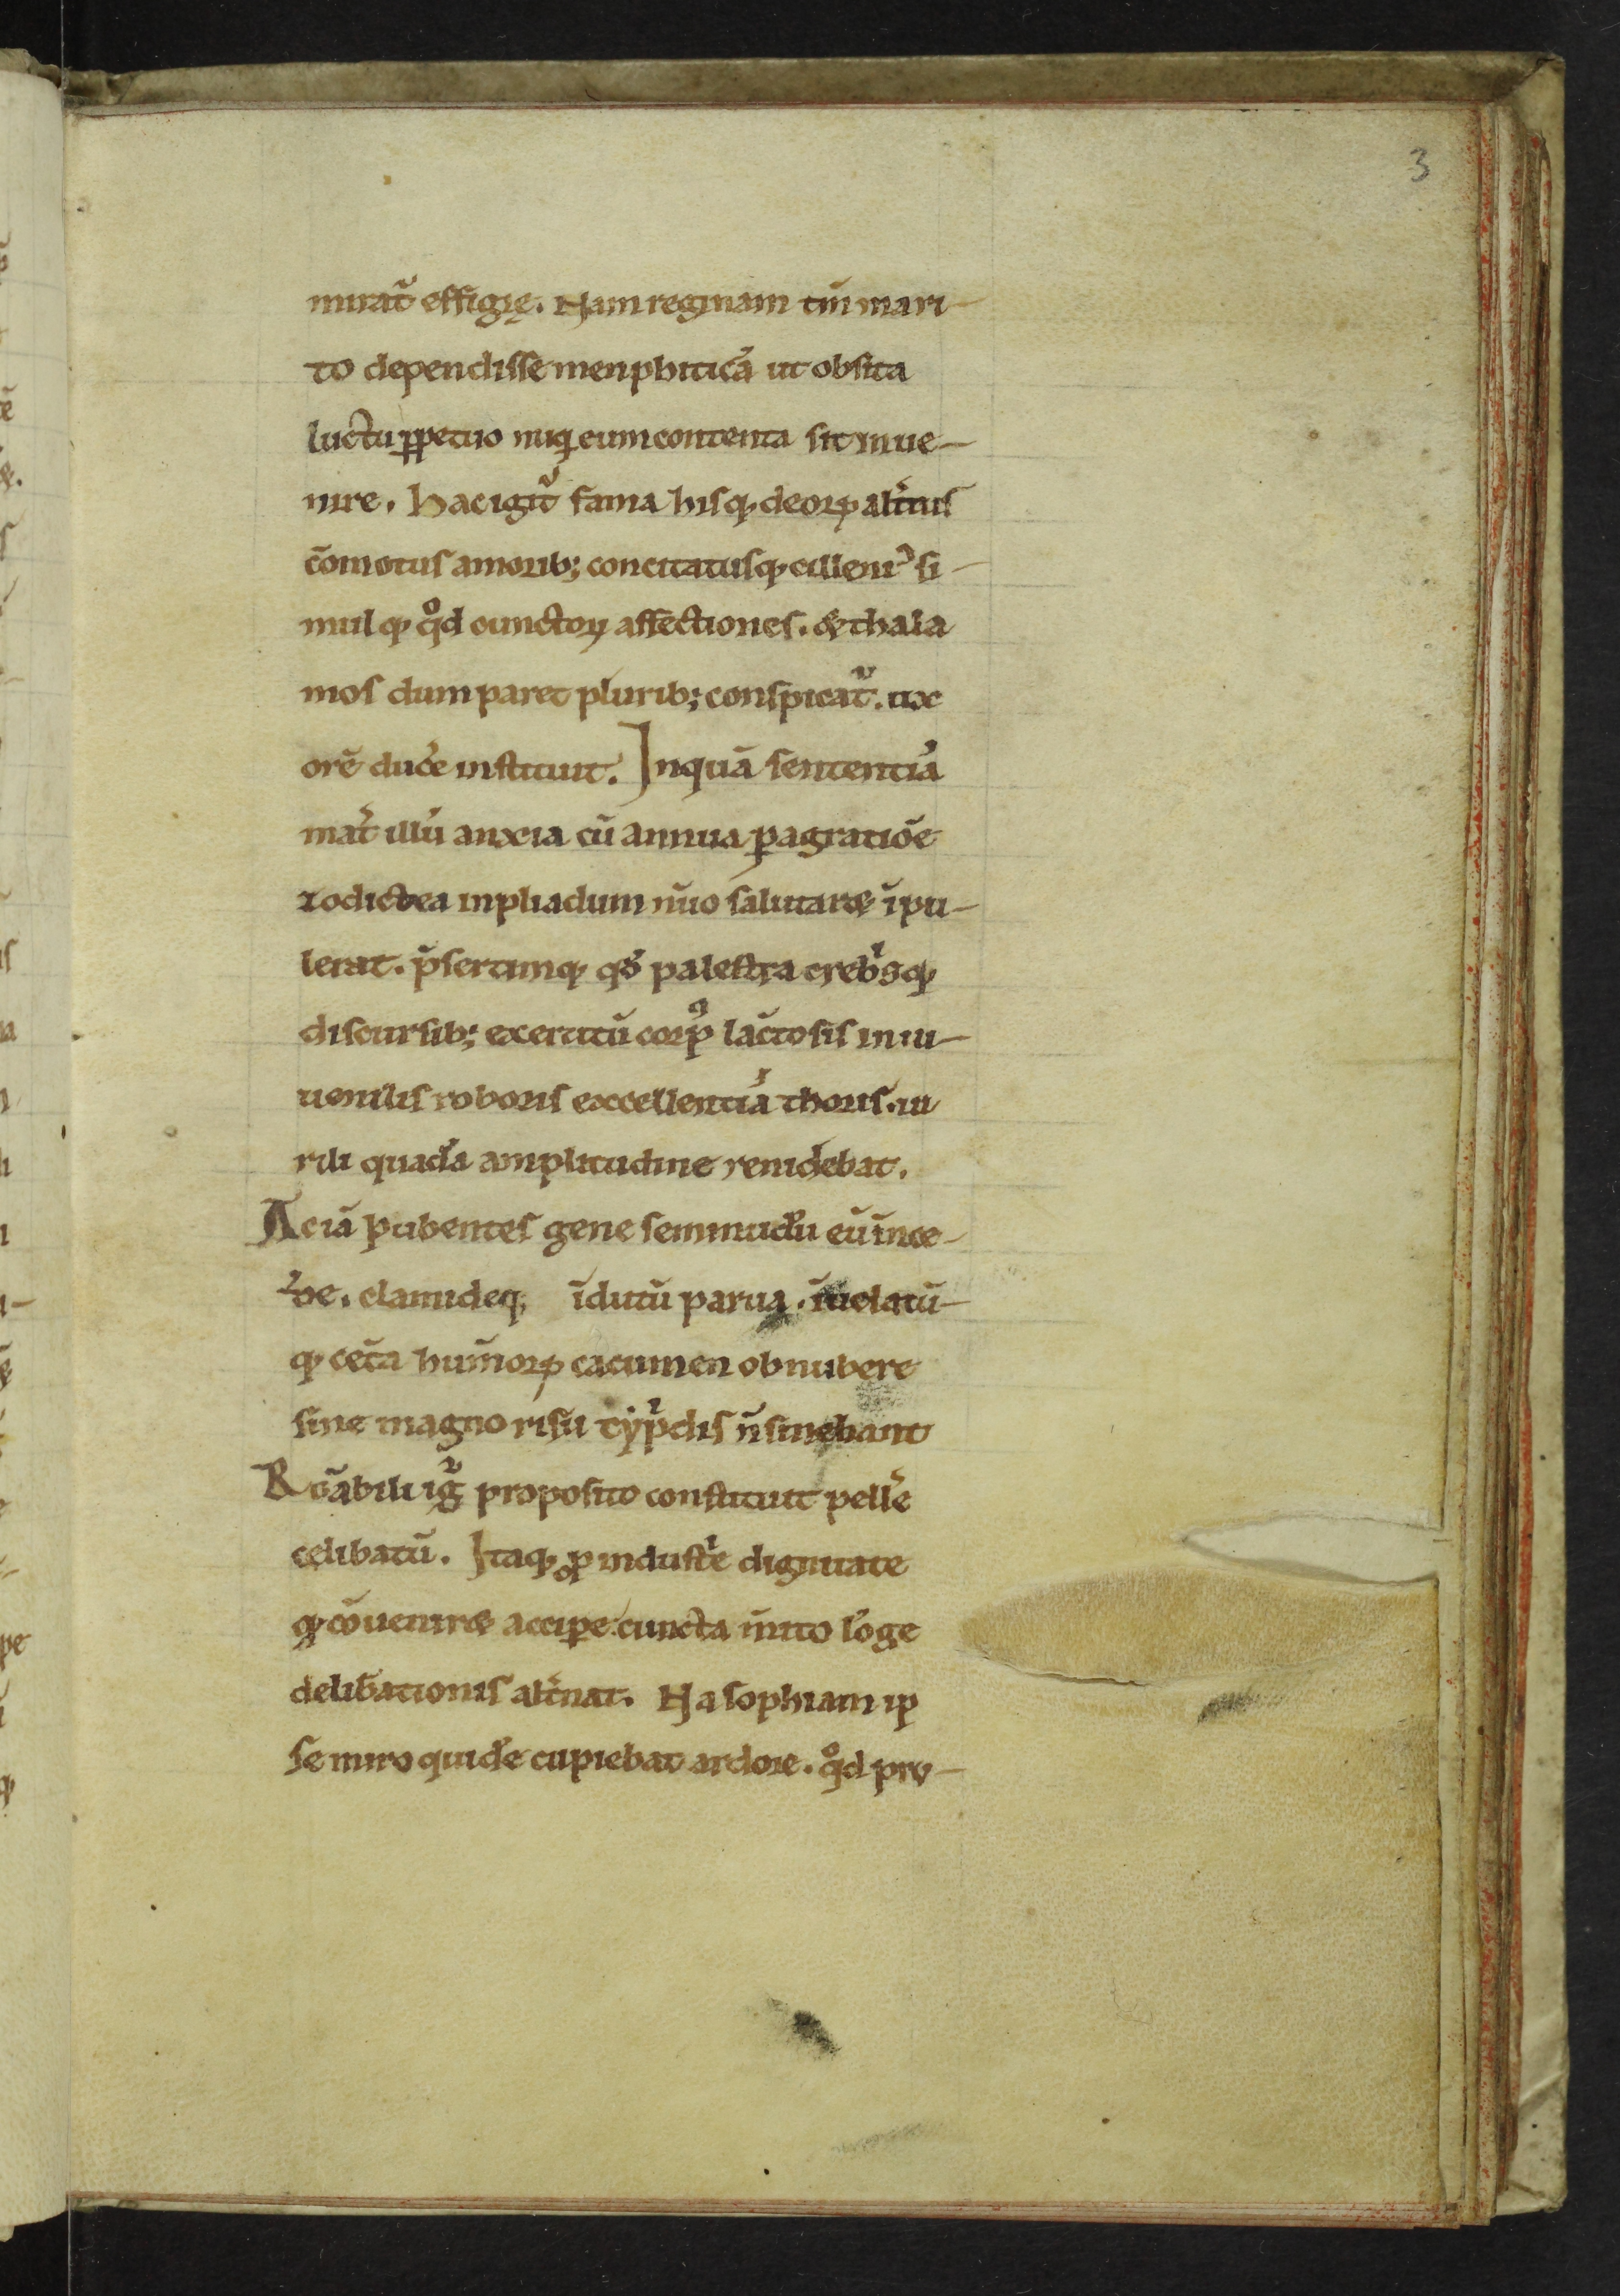 3
mirat᷑ effigię. Nam reginam tm̄ mari-
to dependisse menphiticā ut obsita
luctu ꝑpetuo nūq̄ eum contenta sit inue-
nire. Hac igit᷑ fama hisq; deoꝝ alt̄nis
cōmotus amorib; concitatusq; cilleniꝰ si-
mulq; qͦd cunctoꝝ affectiones. & thala
mos dum paret plurib; conspicat᷑. ux
orē ducē instituit. In quā sententiā
mat̄ illū anxia cū annua ꝑagratiōe
zodictea inpliadum nūo salutar& īpu-
lerat. p̄sertimq; qđ palestra crebͥsq;
discursib; exercitū corpꝰ lactosis in iu-
uenilis roboris excellentiā thoris. ui
rili quadā amplitudine renidebat.
Ac iā pubentes gene seminudū eū īnce-
ꝺe. clamideq; īdutū parua. īuelatū-
q; cet̄a hum̄oꝝ cacumen obnubere
sine magno risu cyp̄dis n̄ sinebant
Rōabili ig᷑ proposito constituit pellē
celibatū. Itaq; ꝓ industͥe dignitate
q; cōuenir& accipe cuncta īnito lōge
delibationis alt̄nat. Nā sophiam ip
se miro quidē cupiebat ardore. qͦd pru-